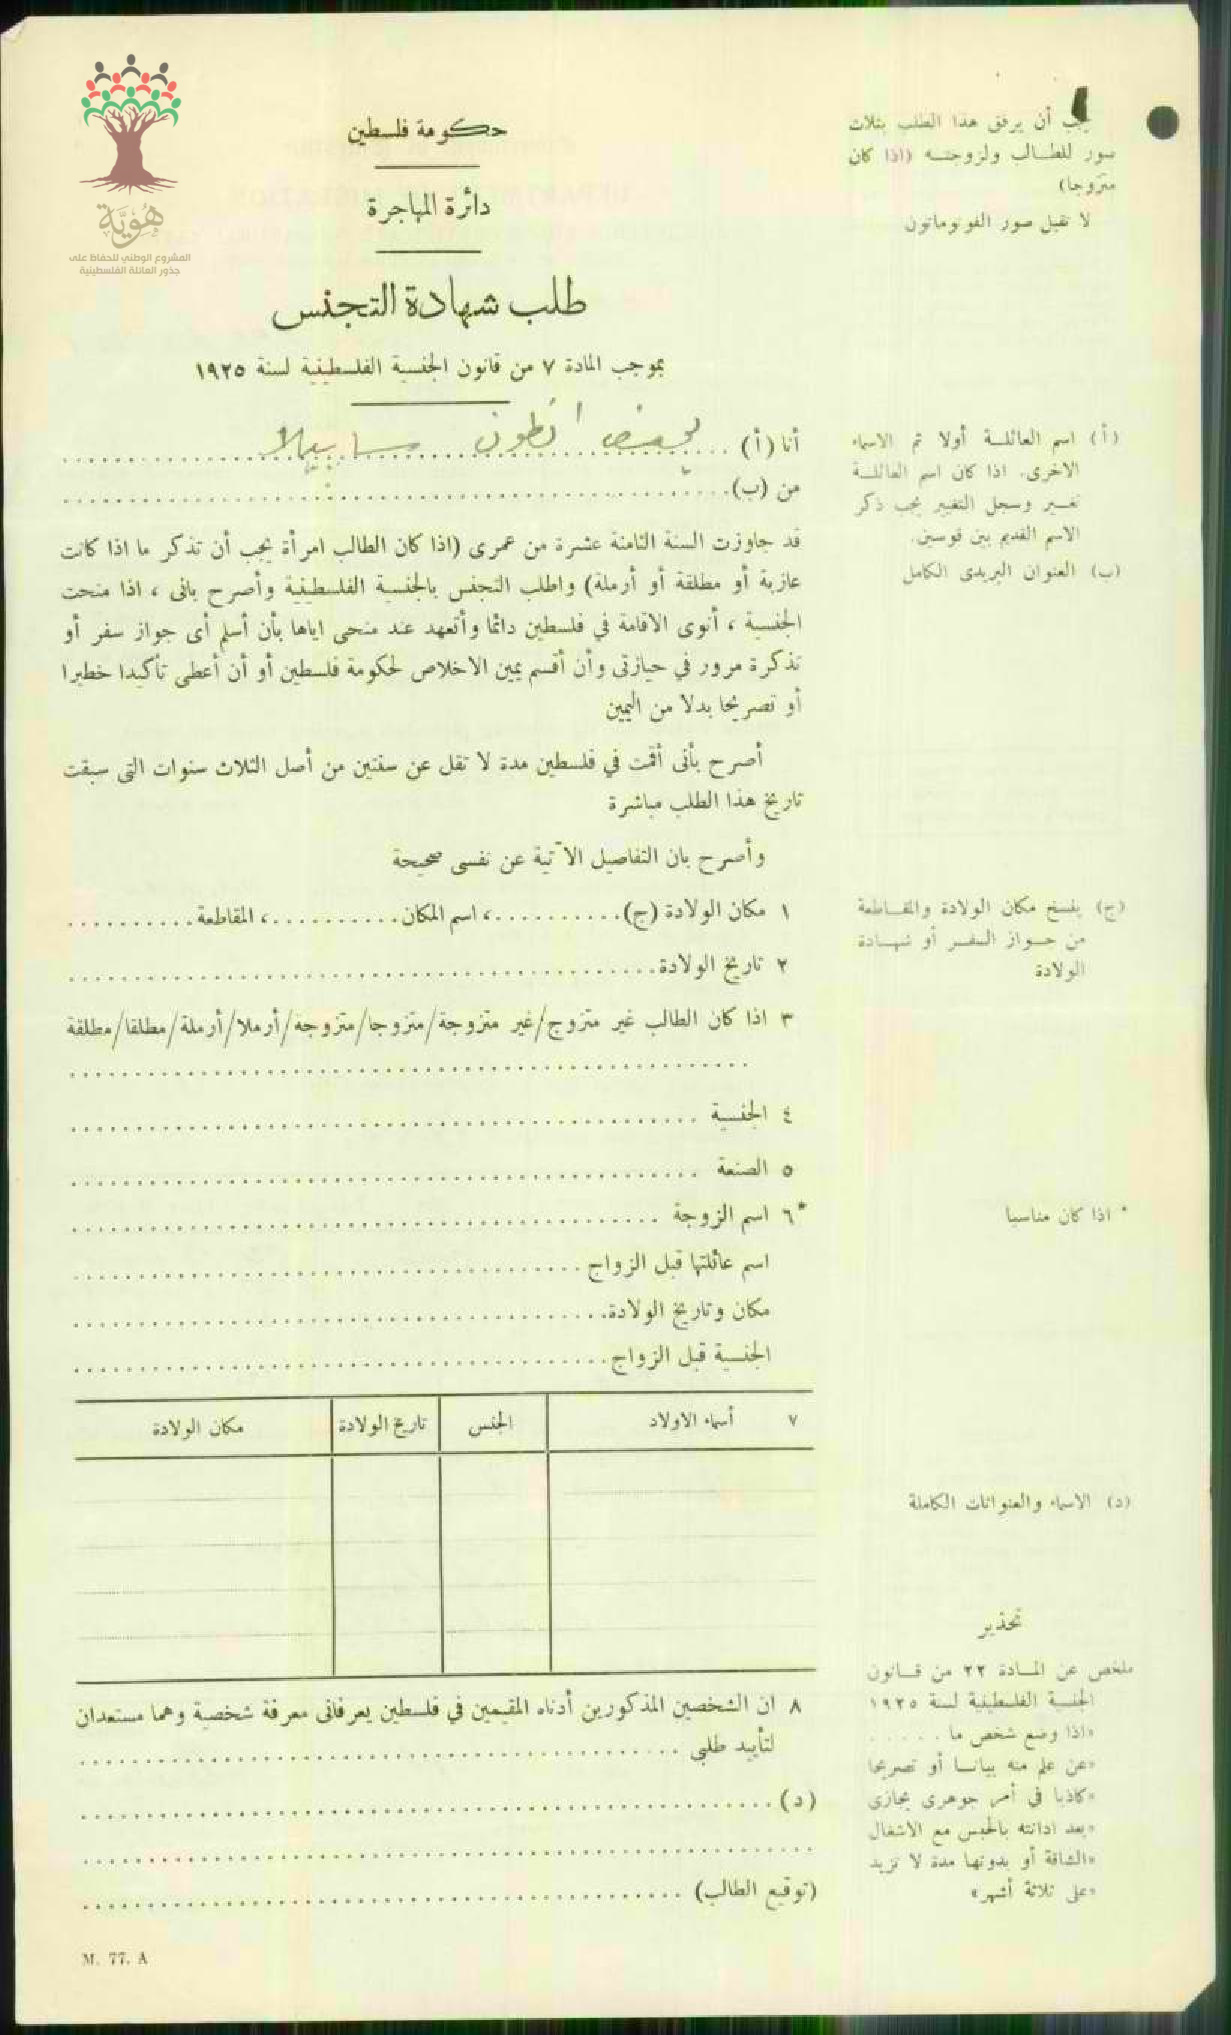 هُوِيَّة
المشروع الوطني للحفاظ على
جذور العائلة الفلسطينية
حكومة فلسطين
دائرة المهاجرة
طلب شهادة التجنس
بموجب المادة ٧ من قانون الجنسية الفلسطينية لسنة ١٩٢٥
يجب أن يرفق هذا الطلب بثلاث
صور للطالب ولزوجته (اذا كان
متزوجا)
لا تقبل صور الفوتوماتون
أنا (أ) انطون سابيلا
من (ب)
(أ) اسم العائلة أولا ثم الاسماء
الاخرى. اذا كان اسم العائلة
تغير وسجل التغيير يجب ذكر
الاسم القديم بين قوسين.
(ب) العنوان البريدى الكامل
قد جاوزت السنة الثامنة عشرة من عمرى (اذا كان الطالب امرأة يجب أن تذكر ما اذا كانت
عازبة أو مطلقة أو أرملة) واطلب التجنس بالجنسية الفلسطينية وأصرح بانى ، اذا منحت
الجنسية ، أنوى الاقامة في فلسطين دائما وأتعهد عند منحى اياها بأن أسلم أى جواز سفر أو
تذكرة مرور في حيازتى وأن أقسم يمين الاخلاص لحكومة فلسطين أو أن أعطى تأكيدا خطيرا
أو تصريحا بدلا من اليمين
أصرح بأنى أقمت في فلسطين مدة لا تقل عن سنتين من أصل الثلاث سنوات التى سبقت
تاريخ هذا الطلب مباشرة
وأصرح بان التفاصيل الآتية عن نفسى صحيحة
١ مكان الولادة (ج)..........، اسم المكان..........، المقاطعة..........
(ج) ينسخ مكان الولادة والمقاطعة
من جواز السفر أو شهادة
الولادة
٢ تاريخ الولادة
٣ اذا كان الطالب غير متزوج/غير متزوجة/متزوجا/متزوجة/أرملا/أرملة/مطلقا/مطلقة
٤ الجنسية
٥ الصنعة
*٦ اسم الزوجة
* اذا كان مناسبا
اسم عائلتها قبل الزواج
مكان وتاريخ الولادة
الجنسية قبل الزواج
٧ أسماء الاولاد الجنس تاريخ الولادة مكان الولادة
(د) الاسماء والعنوانات الكاملة
٨ ان الشخصين المذكورين أدناه المقيمين في فلسطين يعرفانى معرفة شخصية وهما مستعدان
لتأييد طلبى
(د)
(توقيع الطالب)
تحذير
ملخص عن المادة ٢٢ من قانون
الجنسية الفلسطينية لسنة ١٩٢٥
«اذا وضع شخص ما . . . . .
«عن علم منه بيانا أو تصريحا
«كاذبا في أمر جوهرى يجازى
«بعد ادانته بالحبس مع الاشغال
«الشاقة أو بدونها مدة لا تزيد
«على ثلاثة أشهر»
M. 77. A